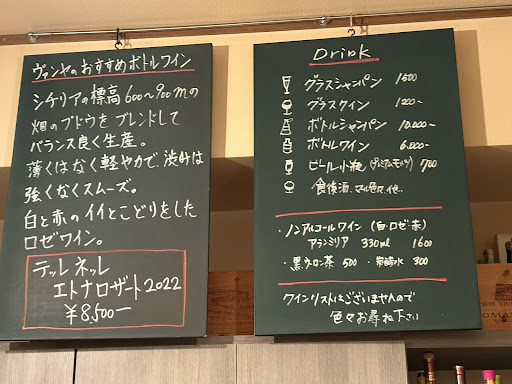 ヴァンヤのおすすめボトルワイン
シチリアの標高600〜900mの
畑のブドウをブレンドして
バランス良く生産。
薄くはなく軽やかで、渋みは
強くなくスムーズ。
白と赤のイイとこどりをした
ロゼワイン。
テッレ ネッレ
エトナロザート2022
¥8,500ー
Drink
グラスシャンパン 1600
グラスワイン 1200〜
ボトルシャンパン 10,000〜
ボトルワイン 6,000〜
ビール小瓶 (プレミアムモルツ) 700
食後酒、マル色々、他、
・ノンアルコールワイン (白・ロゼ・赤)
アランミリア 330ml 1600
・黒ウーロン茶 500 ・炭酸水 300
ワインリストはございませんので
色々お尋ね下さい